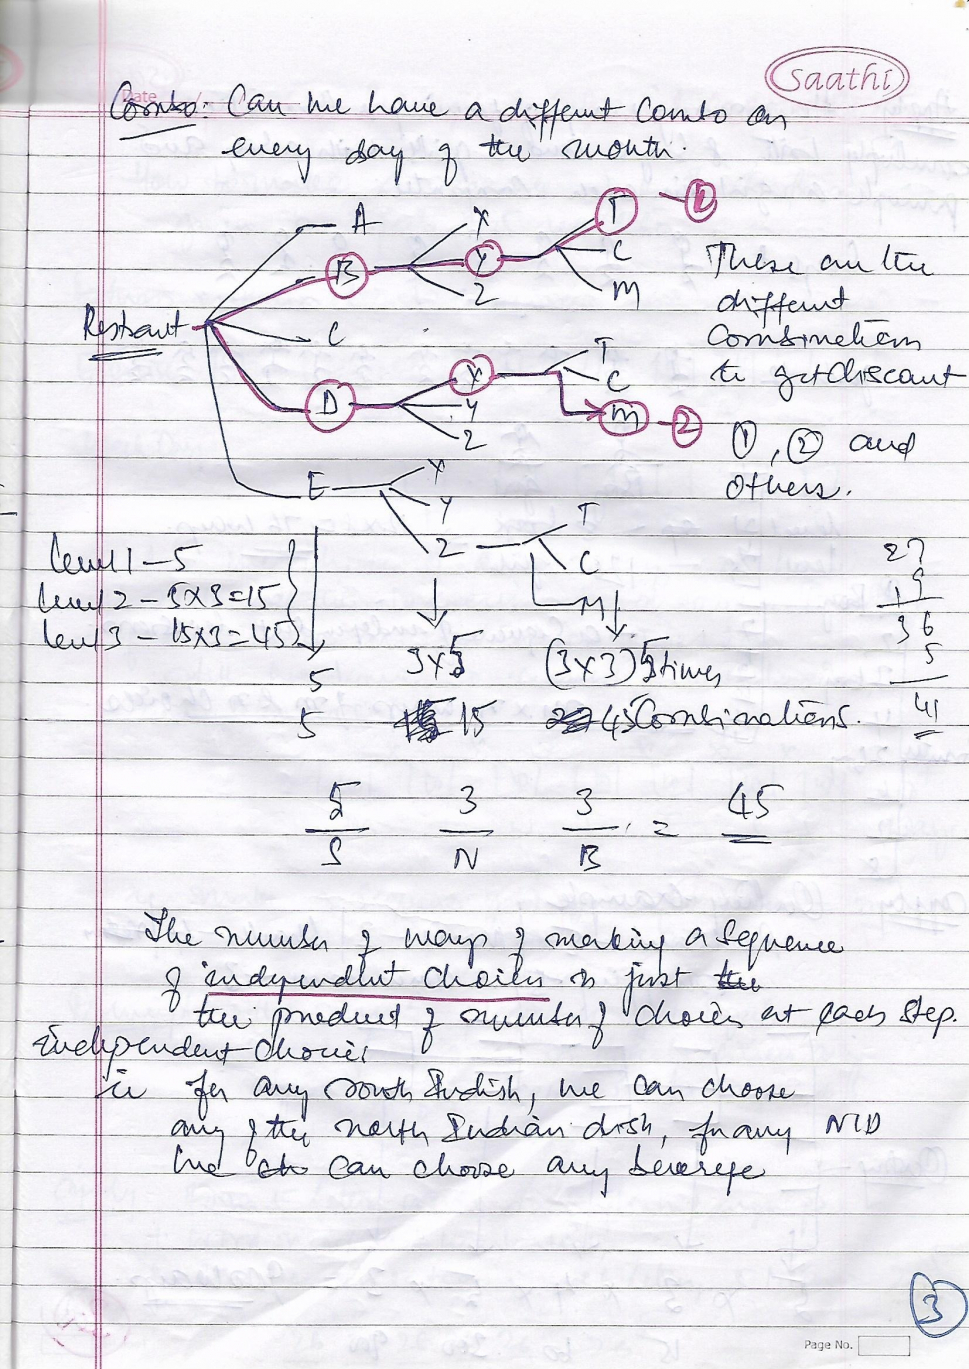 Saathi
Date
Combo: Can we have a different combo on
every day of the month.
A
X
T
①
B
Y
C
Z
M
These are the
different
Combination
to get discount
Restrant
C
T
X
C
D
Y
M
②
Z
①, ② and
others.
E
X
Y
T
Z
C
M
Level 1 - 5
Level 2 - 5x3=15
Level 3 - 15x3=45
27
9
36
5
41
5
3x5
(3x3)5times
5
15
45 Combinations.
5 3 3 = 45
S N B
The number of ways of making a sequence
of independent choices is just the
the product of number of choices at each step.
Independent choices
ie for any south Indish, we can choose
any of the north Indian dish, for any NID
we can choose any beverage
3
Page No.